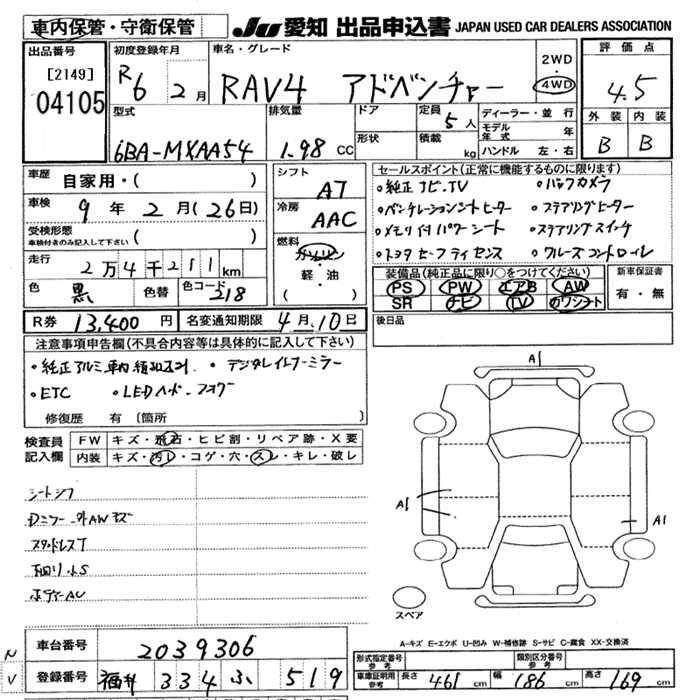 車内保管・守衛保管 JU 愛知 出品申込書 JAPAN USED CAR DEALERS ASSOCIATION
出品番号 初度登録年月 車名・グレード 2WD 評価点
[2149] R6 2月 RAV4 アドベンチャー 4WD 4.5
04105
型式 排気量 ドア 定員 5人 ディーラー・並行 外装 内装
モデル年式 年
6BA-MXAA54 1.98 CC 形状 積載 kg ハンドル 左・右 B B
車歴 自家用・( ) シフト AT セールスポイント(正常に機能するものに限ります)
・純正ナビ.TV ・バックカメラ
車検 9年 2月(26日) 冷房 AAC ・ベンチレーションシートヒーター ・ステアリングヒーター
受検形態 ・メモリ付パワーシート ・ステアリングスイッチ
車検付きのみ記入して下さい ( ) 燃料 ガソリン ・トヨタセーフティセンス ・クルーズコントロール
走行 2万4千211km 軽・油 装備品(純正品に限り○をつけてください) 新車保証書
色 黒 色替 色コード 218 ( ) PS PW エアB AW 有・無
SR ナビ TV カワシート
R券 13,400円 名変通知期限 4月10日 後日品
注意事項申告欄(不具合内容等は具体的に記入して下さい)
・純正アルミ,車内 ・デジタルインナーミラー
・ETC ・LEDヘッド・フォグ
修復歴 有 (箇所 A1
検査員記入欄 FW キズ・飛石・ヒビ割・リペア跡・X要
内装 キズ・汚レ・コゲ・穴・スレ・キレ・破レ
シートシワ
A1 A1
スタッドレスT
下回り小S
スペア
A-キズ E-エクボ U-凹み W-補修跡 S-サビ C-腐食 XX-交換済
車台番号 2039306 形式指定番号 参考 類別区分番号 参考
NV 登録番号 福井 334 ふ 519 車庫証明用 参考 長さ 461cm 幅 186cm 高さ 169cm